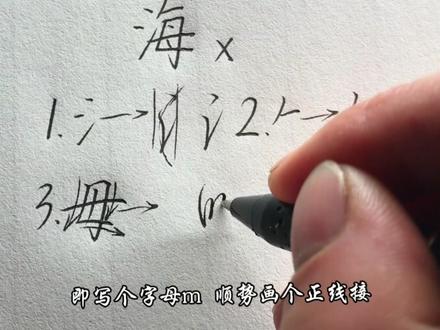 海 x
1. 氵→ 氵 2. 𠂉→
3. 母→ m
即写个字母m 顺势画个正线接